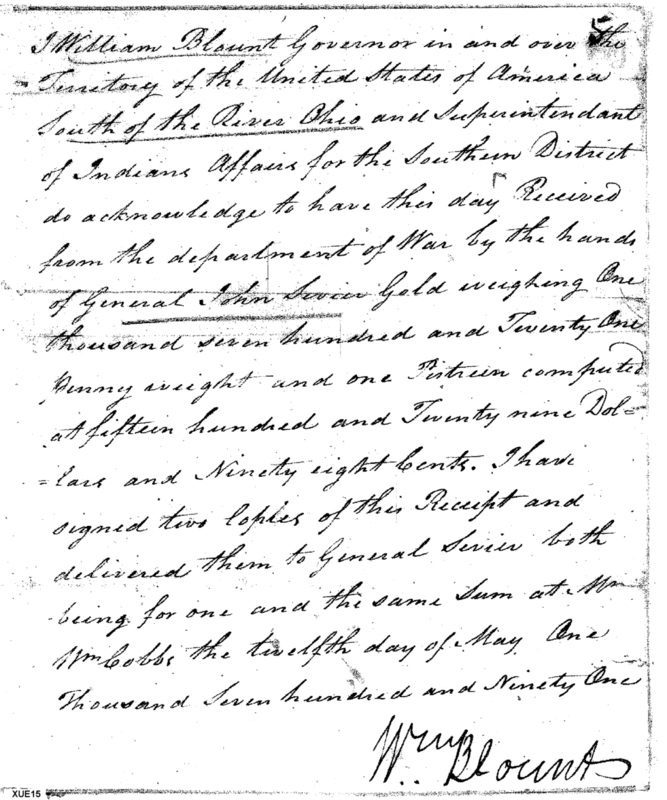 5
I William Blount Governor in and over the
Territory of the United States of America
South of the River Ohio and Superintendant
of Indians Affairs for the Southern District
do acknowledge to have this day Received
from the department of War by the hands
of General John Sevier Gold weighing One
thousand seven hundred and Twenty One
Penny weight and one Pistreen computed
at fifteen hundred and Twenty nine Dol=
=lars and Ninety eight Cents. I have
signed two Copies of this Receipt and
delivered them to General Sevier both
being for one and the same Sum at Mr
Wm Cobbs the twelfth day of May One
Thousand Seven hundred and Ninety One
Wm Blount
XUE15